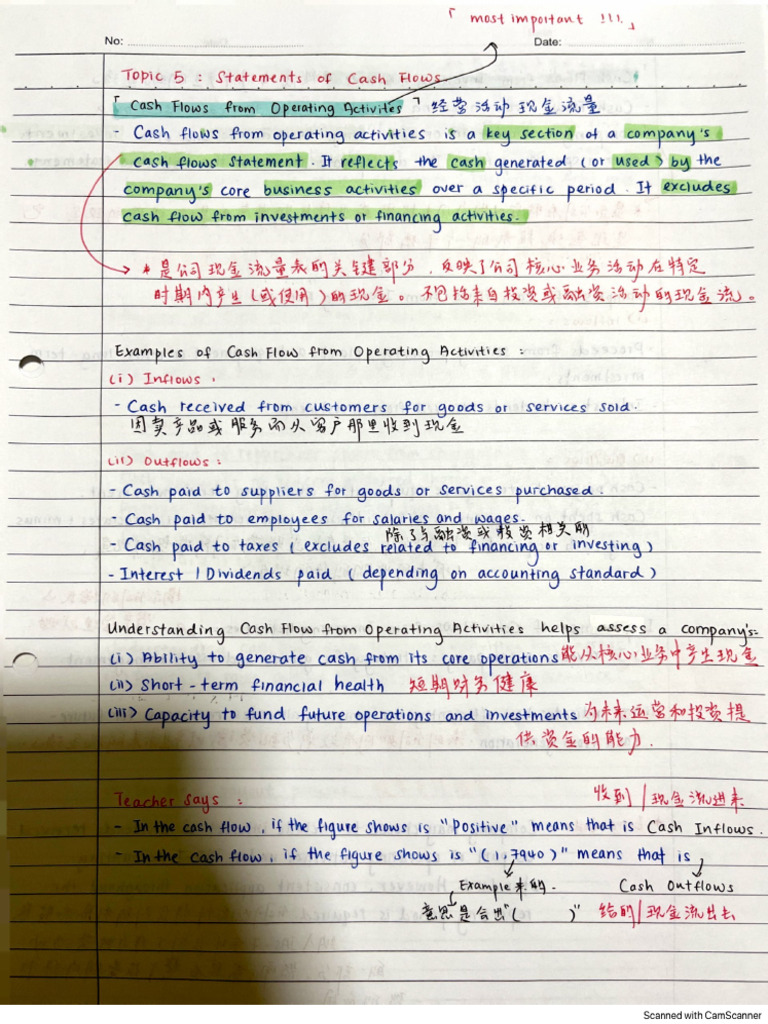 「 most important !!! 」
No:
Date:
Topic 5 : Statements of Cash Flows
「 Cash Flows from Operating Activites 」 经营活动现金流量
- Cash flows from operating activities is a key section of a company's
cash flows statement. It reflects the cash generated (or used) by the
company's core business activities over a specific period. It excludes
cash flow from investments or financing activities.
* 是公司现金流量表的关键部分，反映了公司核心业务活动在特定
时期内产生(或使用)的现金。不包括来自投资或融资活动的现金流。
Examples of Cash Flow from Operating Activities :
(i) Inflows :
- Cash received from customers for goods or services sold.
因卖产品或服务而从客户那里收到现金
(ii) Outflows :
- Cash paid to suppliers for goods or services purchased.
- Cash paid to employees for salaries and wages.
除了与融资或投资相关的
- Cash paid to taxes ( excludes related to financing or investing )
- Interest / Dividends paid ( depending on accounting standard )
Understanding Cash Flow from Operating Activities helps assess a company's:
(i) Ability to generate cash from its core operations 能从核心业务中产生现金
(ii) Short-term financial health 短期财务健康
(iii) Capacity to fund future operations and investments 为未来运营和投资提
供资金的能力.
Teacher says :
收到/现金流进来
- In the cash flow, if the figure shows is "Positive" means that is Cash Inflows.
- In the cash flow, if the figure shows is "(1,7940)" means that is
Example来的. Cash Outflows
意思是会出"( )" 给的/现金流出去
Scanned with CamScanner